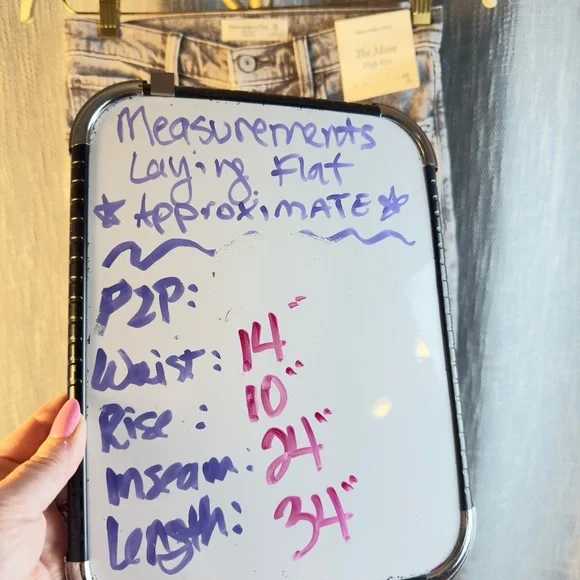 The Mom
High Rise
Measurements
Laying Flat
☆ Approximate ☆
P2P:
Waist: 14"
Rise: 10"
Inseam: 24"
Length: 34"